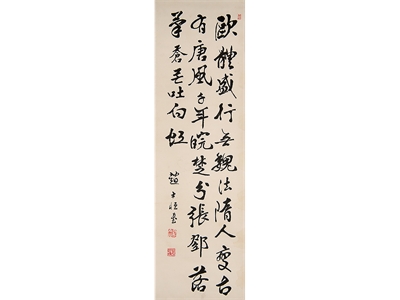 歐體盛行無魏法隋人變古
有唐風千年皖楚分張鄧落
筆蒼茫吐白虹
趙